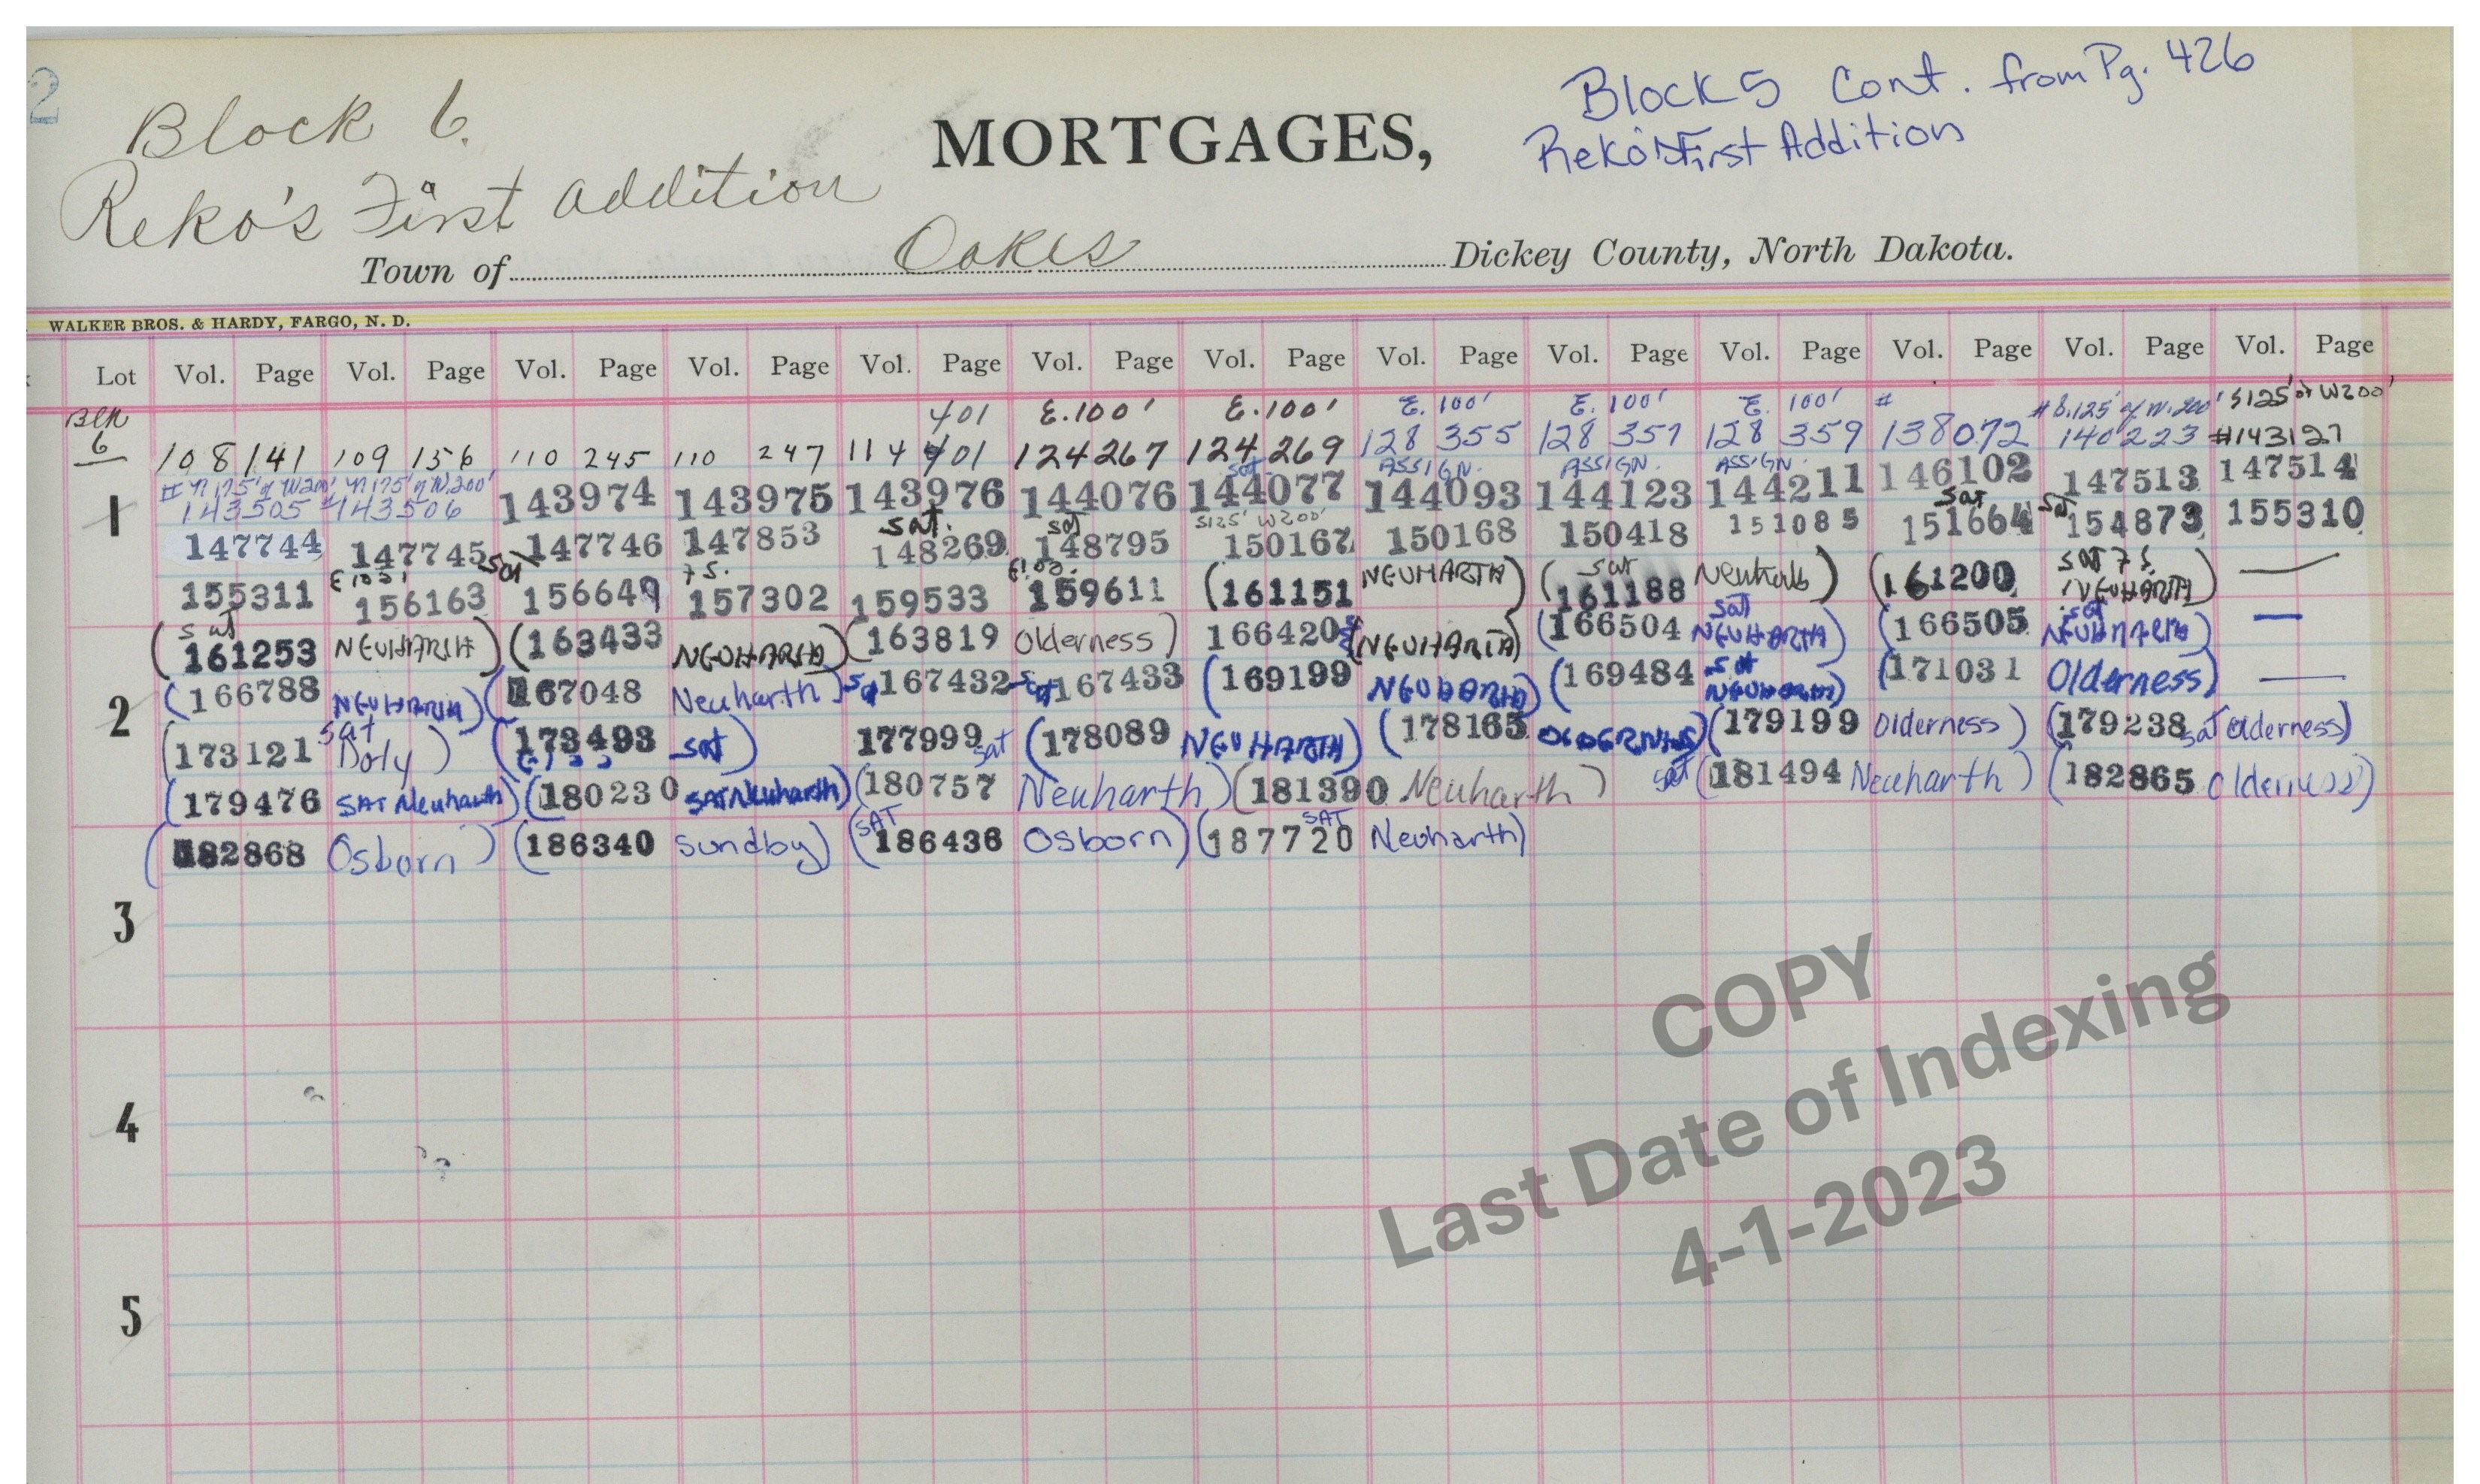 2
Block 6.
Reko's First Addition
MORTGAGES,
Block 5 Cont. from Pg. 426
Reko's First Addition
Town of Oakes Dickey County, North Dakota.
WALKER BROS. & HARDY, FARGO, N. D.
Lot Vol. Page Vol. Page Vol. Page Vol. Page Vol. Page Vol. Page Vol. Page Vol. Page Vol. Page Vol. Page Vol. Page Vol. Page Vol. Page
Blk 401 E.100' E.100' E. 100' E. 100' E. 100' # # S.125' of W.200' S125' of W200'
6 108 141 109 156 110 245 110 247 114 401 124 267 124 269 128 355 128 357 128 359 138072 140223 #143127
# N 175' of W200' N 175' of W.200' sat ASSIGN. ASSIGN. ASSIGN.
1 143505 #143506 143974 143975 143976 144076 144077 144093 144123 144211 146102 147513 147514
sat. sat S125' W200' sat sat
147744 147745 147746 147853 148269 148795 150167 150168 150418 151085 151664 154873 155310
E100' sat 7S. E100.
155311 156163 156649 157302 159533 159611 (161151 NEUHARTH) (161188 sat Neuharth) (161200 sat 7S. NEUHARTH) —
(sat 161253 NEUHARTH) (163433 NEUHARTH) (163819 Olderness) 166420 (NEUHARTH) (166504 sat NEUHARTH) (166505 sat NEUHARTH) —
2 (166788 NEUHARTH) (167048 Neuharth) sat 167432 sat 167433 (169199 NEUHARTH) (169484 sat NEUHARTH) (171031 Olderness) —
(173121 sat Doly) (173493 sat) 177999 sat (178089 NEUHARTH) (178165 OLDERNESS) (179199 Olderness) (179238 sat Olderness)
(179476 SAT Neuharth) (180230 SAT Neuharth) (180757 Neuharth) (181390 Neuharth) sat (181494 Neuharth) (182865 Olderness)
(182868 Osborn) (186340 Sundby) (SAT 186436 Osborn) (187720 SAT Neuharth)
3
4
5
COPY
Last Date of Indexing
4-1-2023